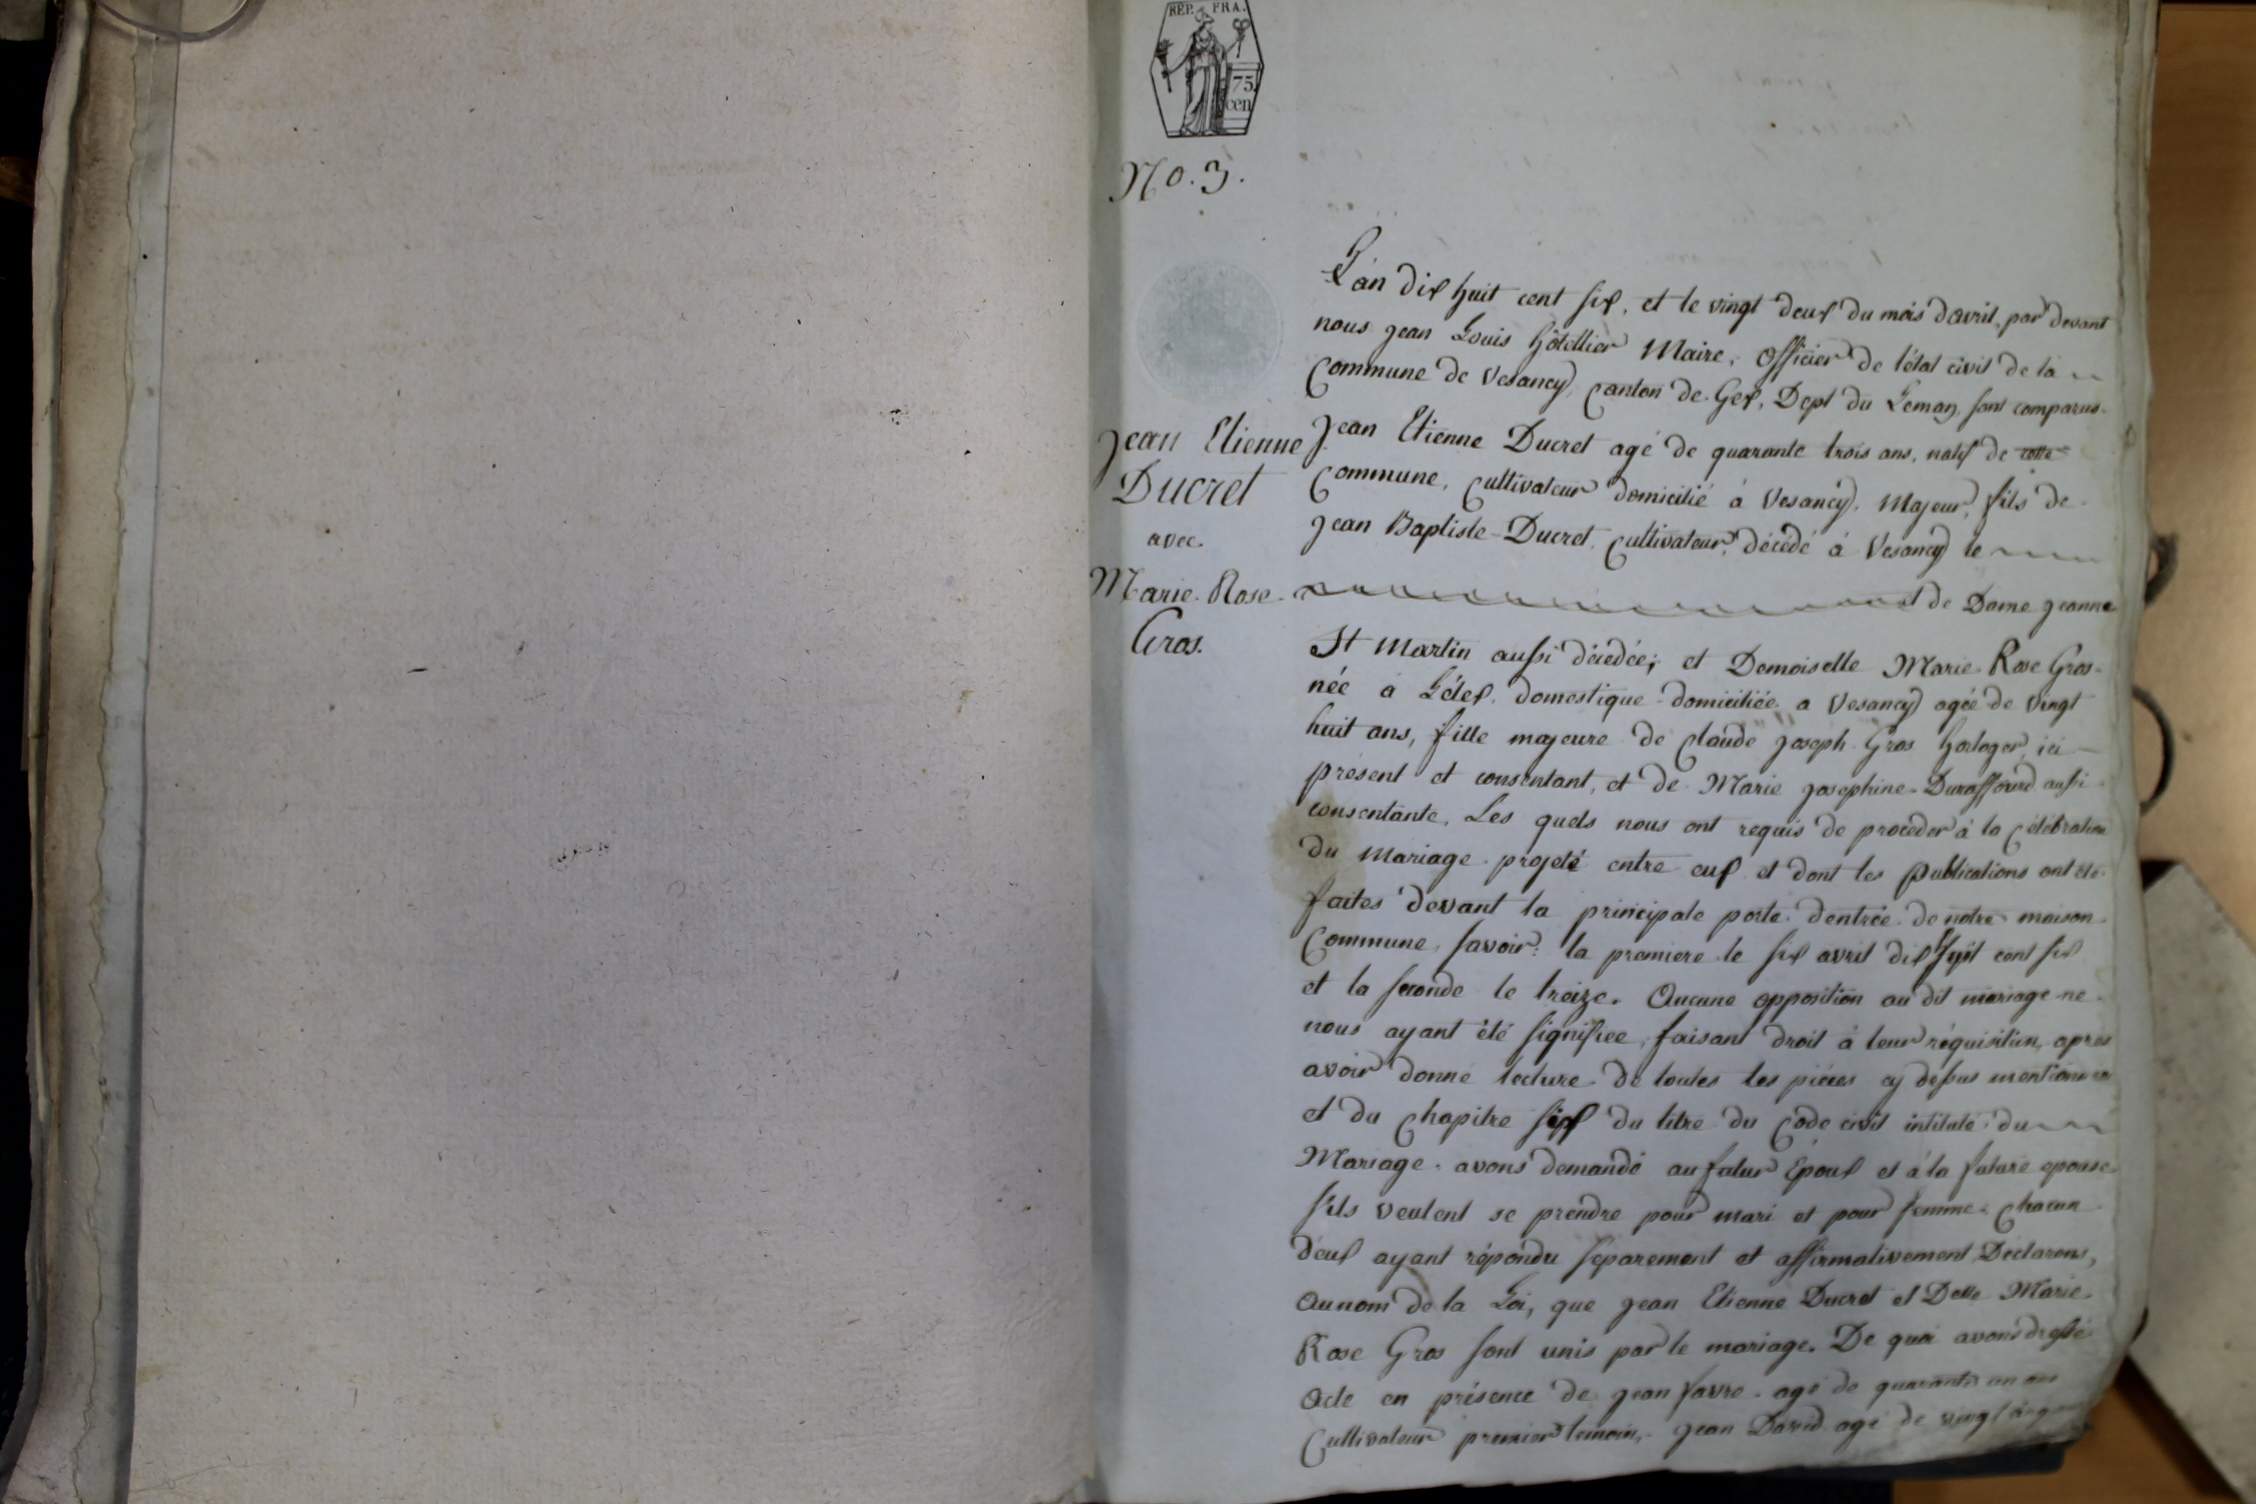 RÉP. FRA.
75
cen
No. 3.
Jean Etienne
Ducret
avec.
Marie Rose
Gros.
L'an dix huit cent six, et le vingt deux du mois davril, par devant
nous jean Louis hôtellier Maire, Officier de l'état civil de la
Commune de Vesancy, Canton de Gex, Dept du Leman, sont comparus
Jean Etienne Ducret agé de quarante trois ans, natif de cette
Commune, Cultivateur domicilié à Vesancy, Majeur, fils de
jean Baptiste Ducret, Cultivateur, décédé à Vesancy le
et de Dame jeanne
St Martin aussi décédée; et Demoiselle Marie Rose Gros
née à Lélex, domestique domiciliée a Vesancy agée de vingt
huit ans, fille majeure de Claude joseph Gros horloger, ici
présent et consentant, et de Marie josephine Duraffourd aussi
consentante, Les quels nous ont requis de proceder à la Célébration
du Mariage projeté entre eux et dont les publications ont été
faites devant la principale porte dentrée de notre maison
Commune, savoir: la premiere le six avril dix huit cent six
et la seconde le treize. Aucune opposition au dit mariage ne
nous ayant été signifiee, faisant droit à leur réquisition, apres
avoir donné lecture de toutes les piéces cy dessus mentionnées
et du Chapitre six du titre du Code civil intitulé du
Mariage, avons demandé au futur Epoux et à la future epouse
s'ils veulent se prendre pour mari et pour femme, Chacun
d'eux ayant répondu séparement et affirmativement, Déclarons,
Au nom de la Loi, que jean Etienne Ducret et Delle Marie
Rose Gros sont unis par le mariage. De quoi avons dressé
Acte en présence de jean favre agé de quarante un ans
Cultivateur premier temoin, jean David agé de vingt